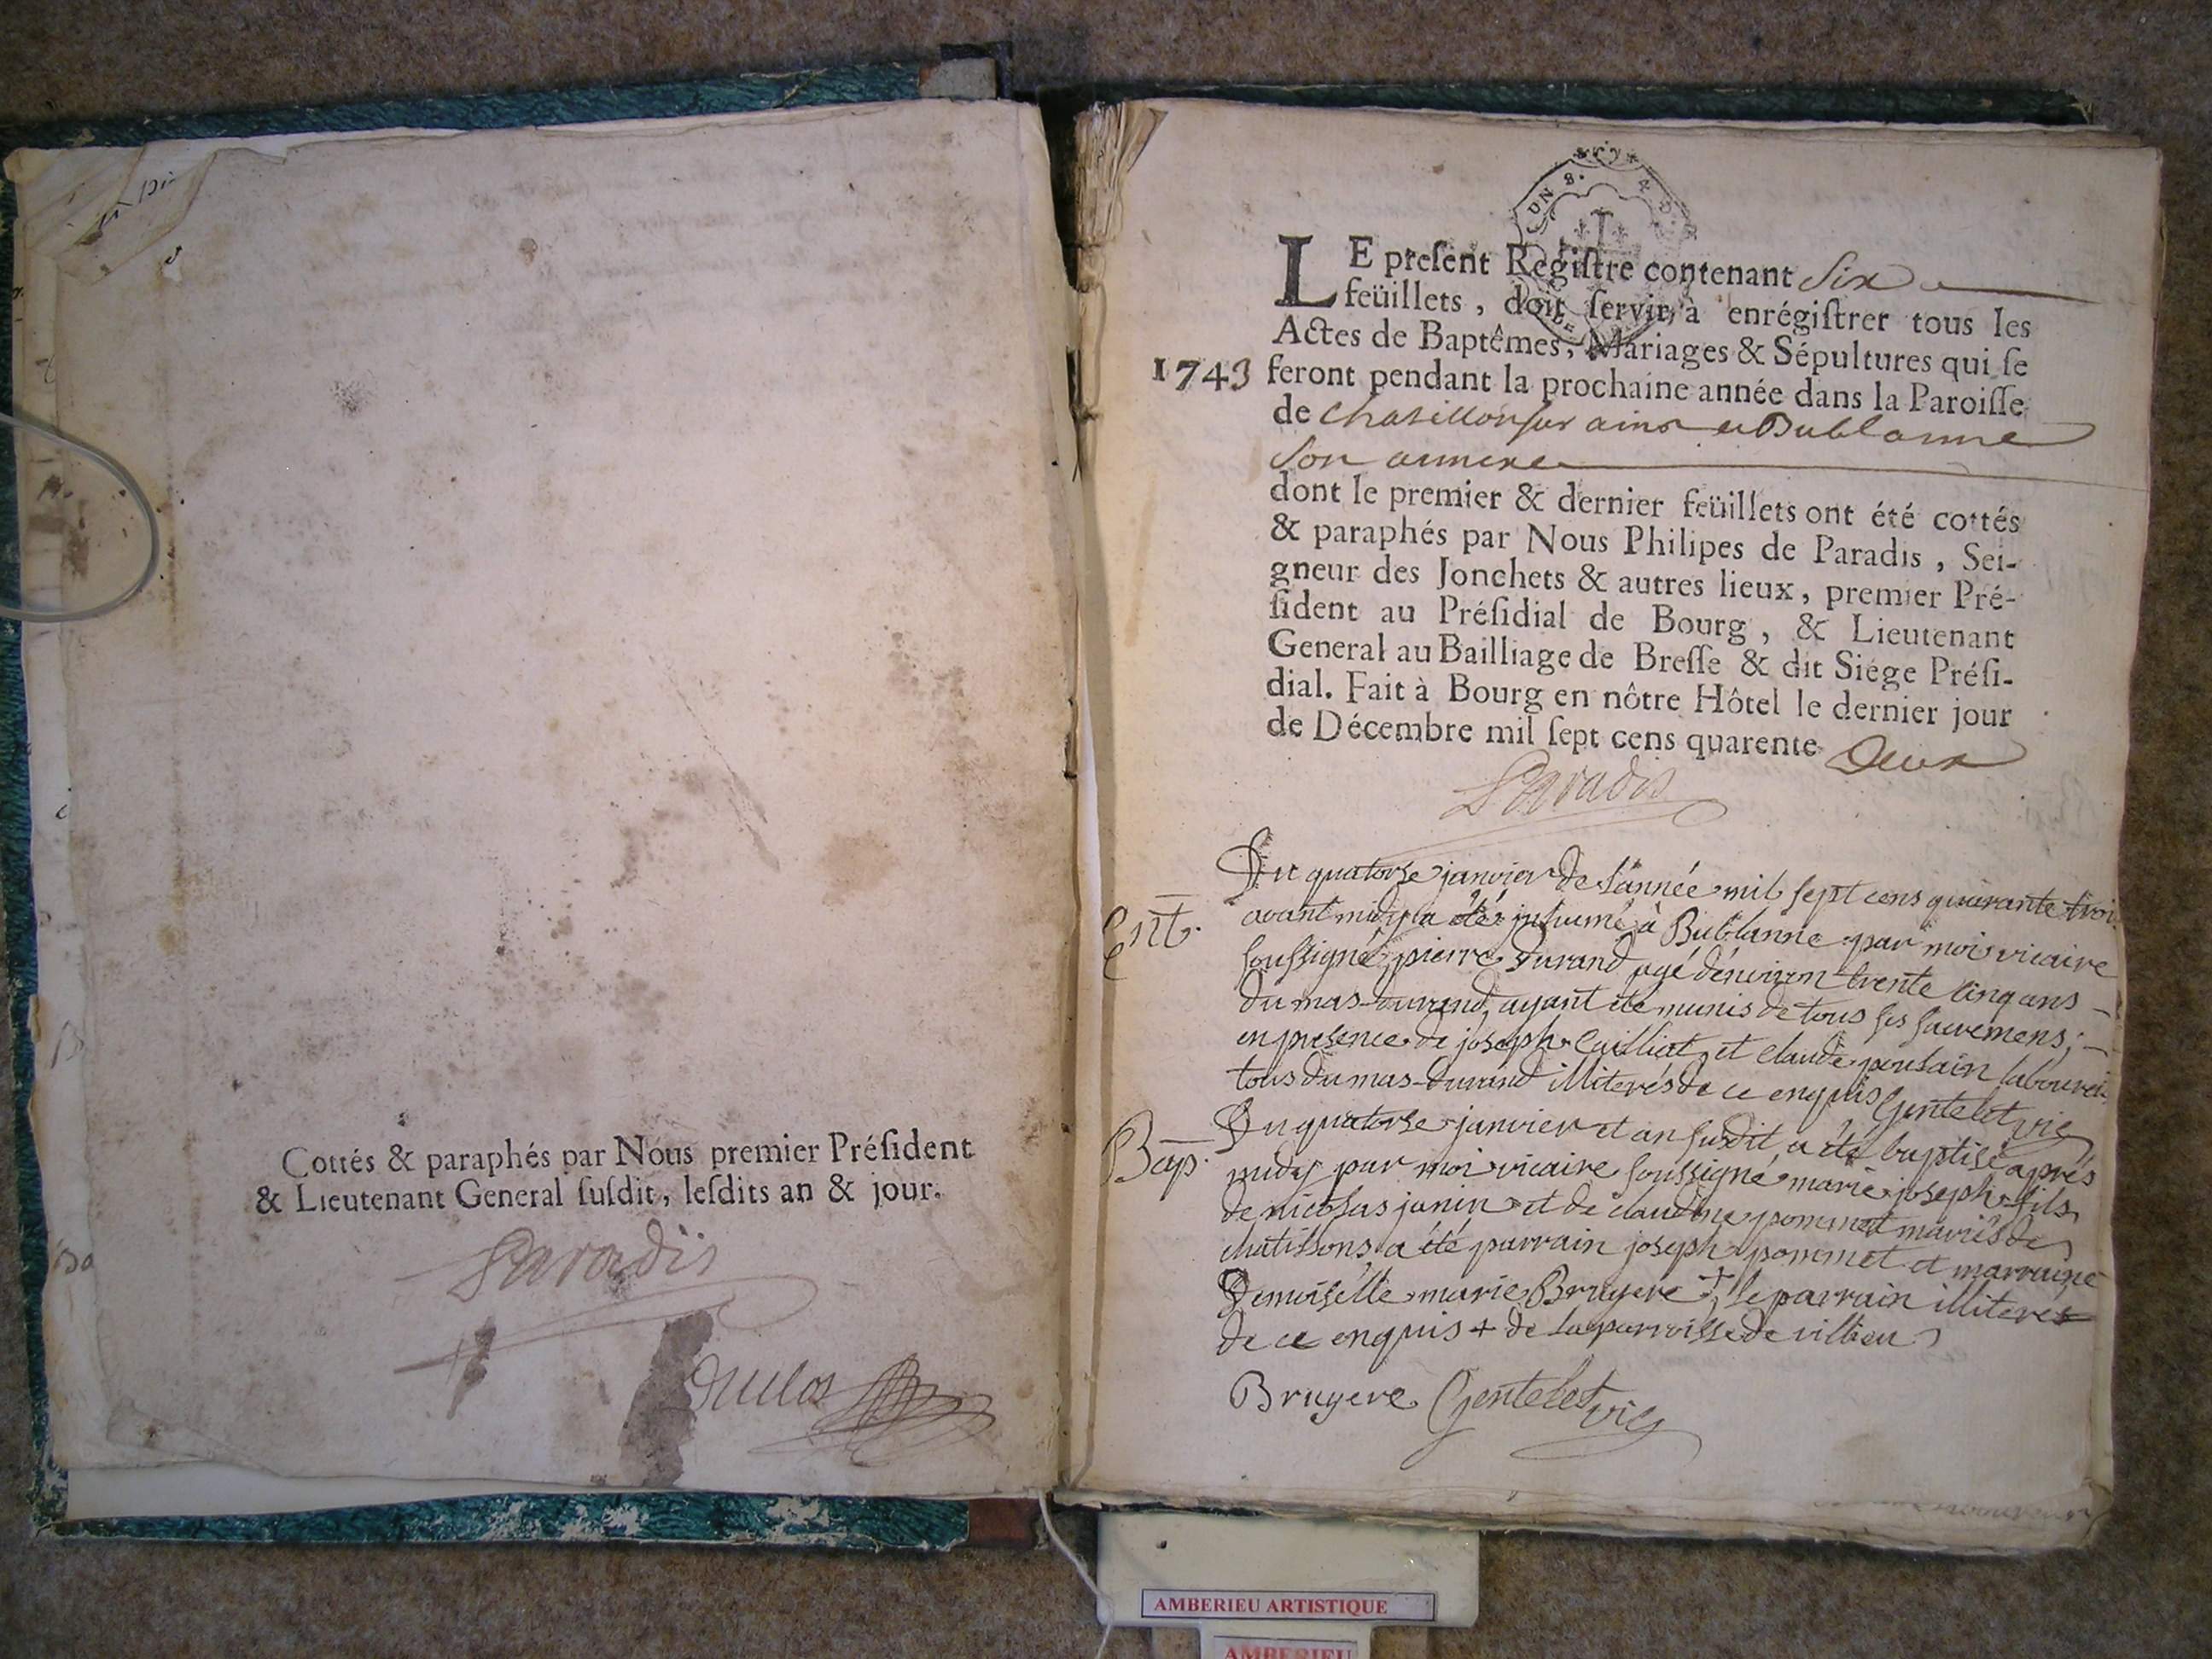 Cottés & paraphés par Nous premier Préſident
& Lieutenant General ſuſdit, leſdits an & jour.
Paradis
LE preſent Regiſtre contenant Six
feüillets, doit ſervir à enrégiſtrer tous les
Actes de Baptêmes, Mariages & Sépultures qui ſe
1743 feront pendant la prochaine année dans la Paroiſſe
de Chatillon ſur ains et Bublanne
Son annexe
dont le premier & dernier feüillets ont été cottés
& paraphés par Nous Philipes de Paradis, Sei-
gneur des Jonchets & autres lieux, premier Pré-
ſident au Préſidial de Bourg, & Lieutenant
General au Bailliage de Breſſe & dit Siége Préſi-
dial. Fait à Bourg en nôtre Hôtel le dernier jour
de Décembre mil ſept cens quarente Deux
Paradis
Du quatorse janvier de l'année mil sept cens quarante trois
Ent. avant midy a été inhumé à Bublanne par moi vicaire
soussigné, pierre Durand agé dénviron trente cinq ans
du mas-durand, ayant été munis de tous ses sacremens;
en presence de joseph Cailliat, et claude poulain laboureu
tous du mas-durand illiterés de ce enquis Gentelet vic
Du quatorse janvier et an susdit, a été baptisé aprés
Bap. midy par moi vicaire soussigné marie joseph fils
de nicolas janin et de claudine pommet mariés de
chatillons, a été parrain joseph pommet et marraine
Demoiselle marie Bruyere +, le parrain illiteres
de ce enquis + de la parroisse de villieu
Bruyere Gentelet vic
AMBERIEU ARTISTIQUE
AMBERIEU